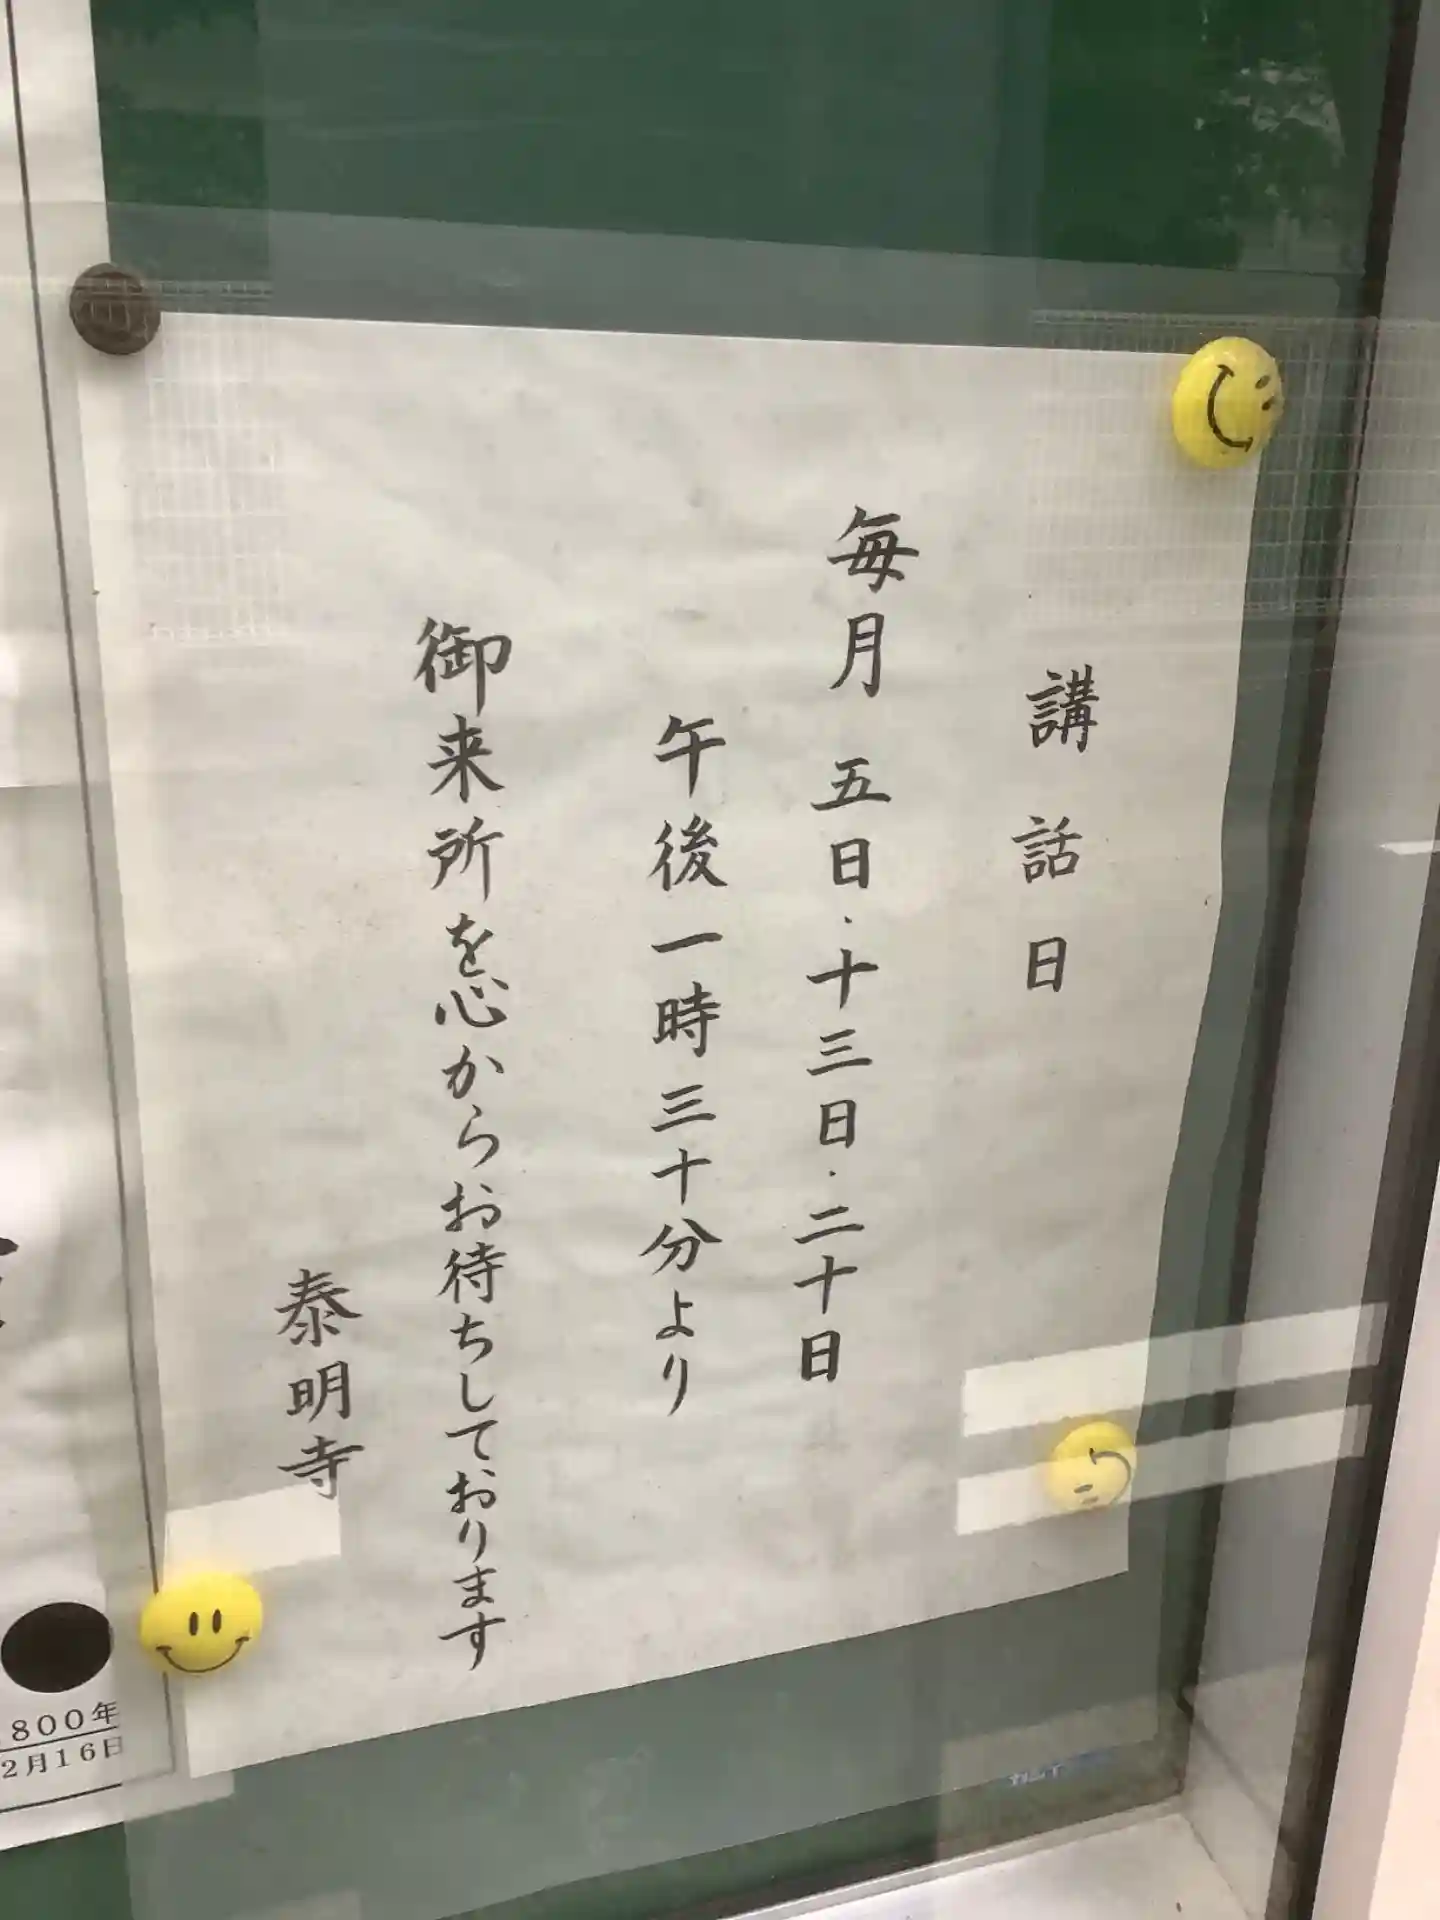 講話日
毎月 五日・十三日・二十日
午後一時三十分より
御来所を心からお待ちしております
泰明寺
800年
2月16日